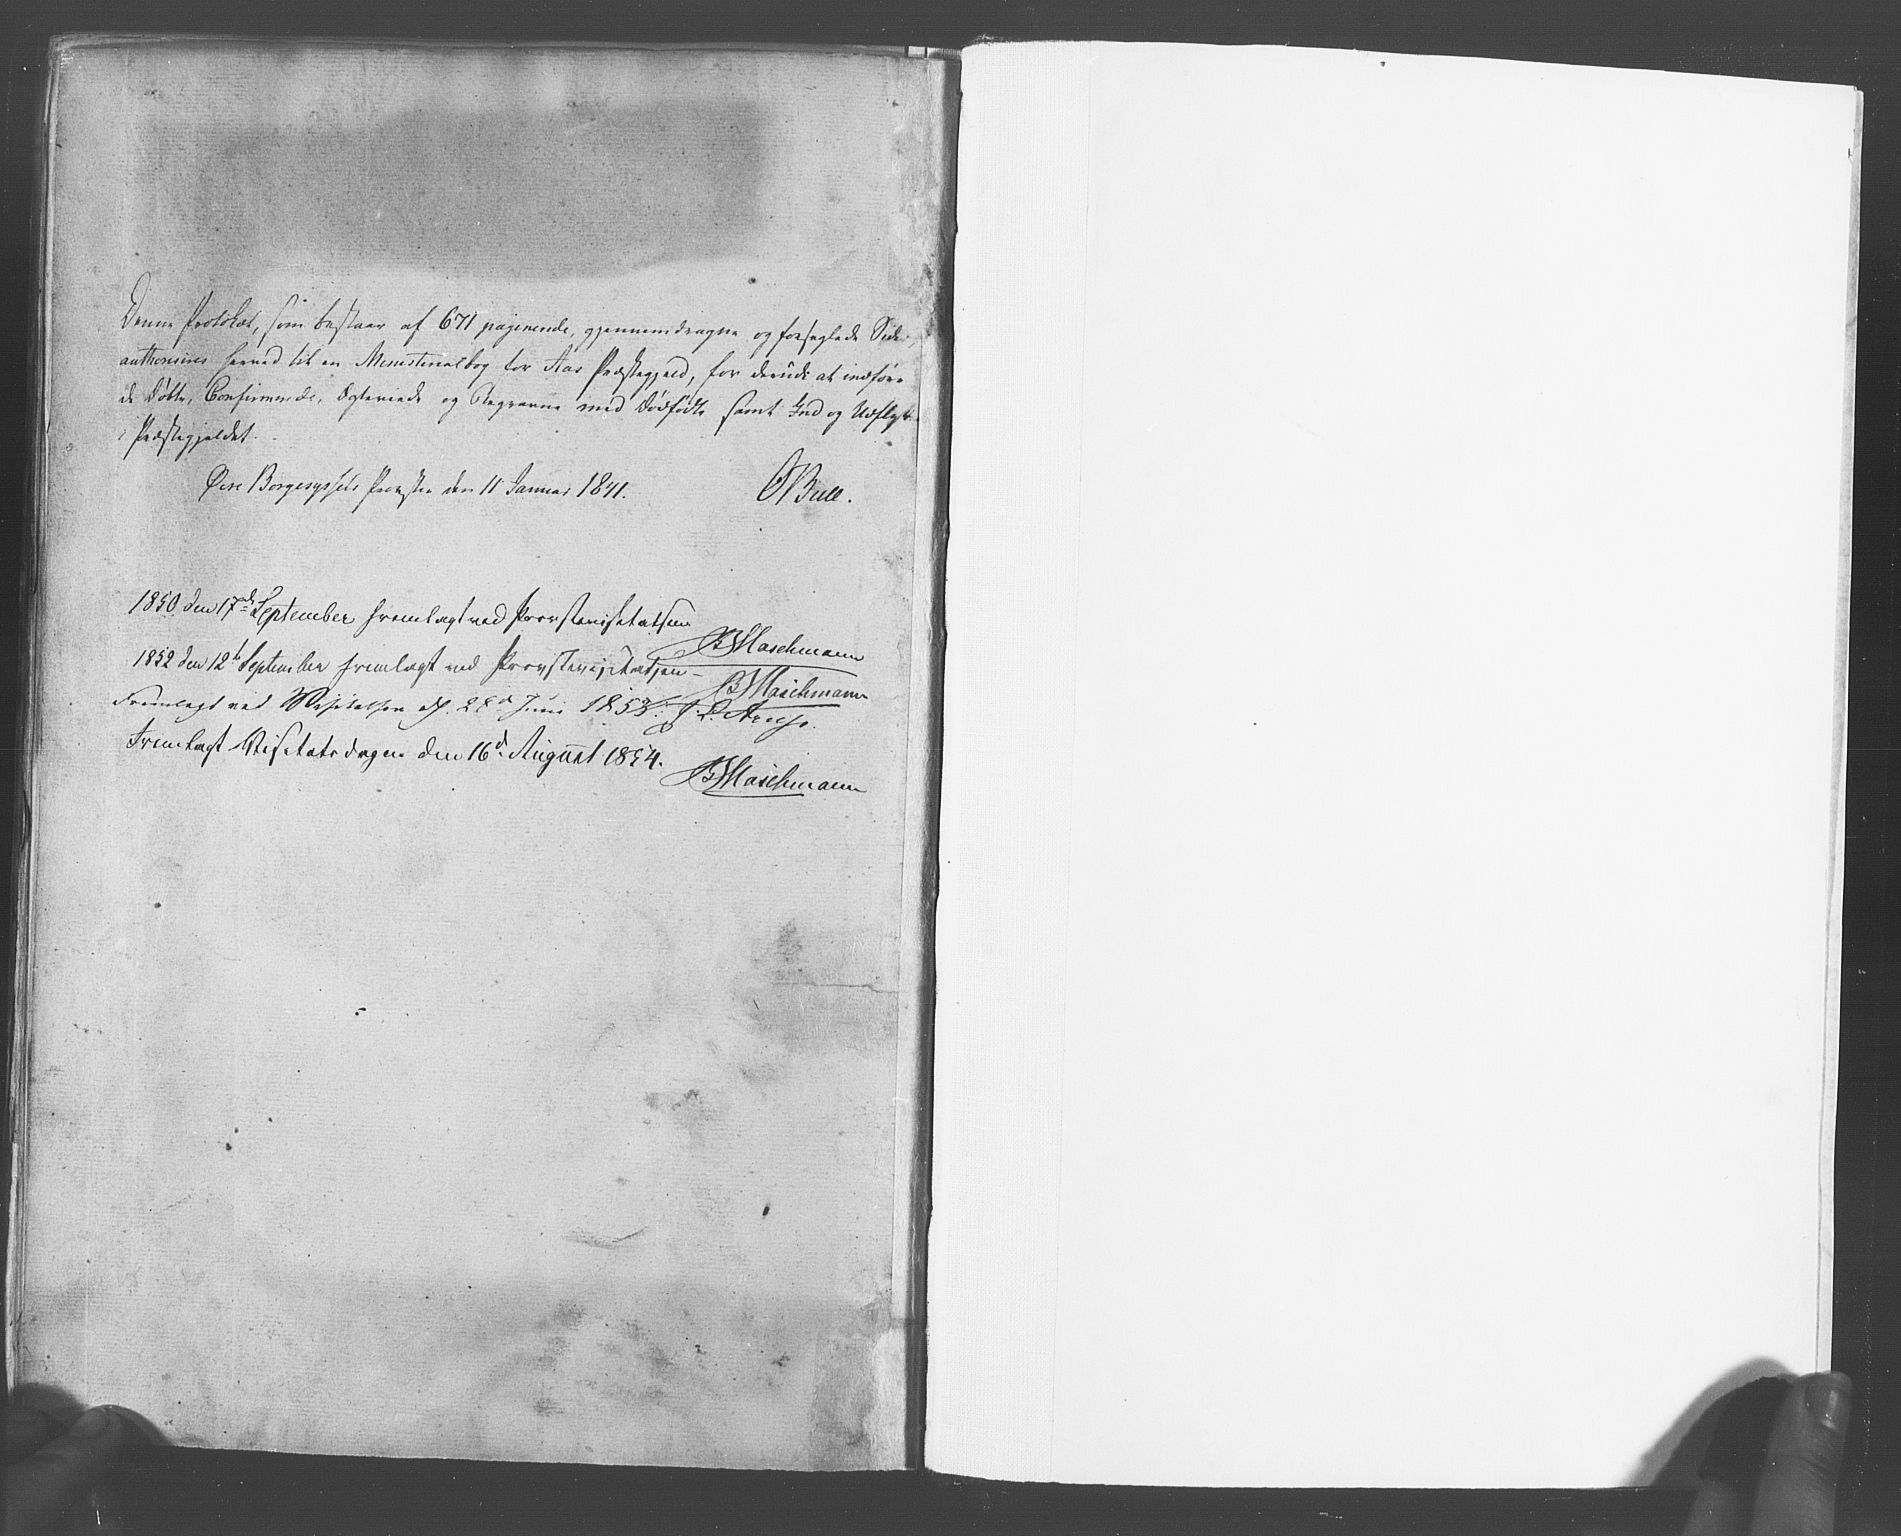 Denne Protokol, som bestaaer af 671 paginerede, gjennemdragne og forseglede Sider,
authoriseres herved til en Ministerialbog for Aas Præstegjeld, for derudi at indføre
de Døbte, Confirmerede, Egteviede og Begravne med Dødfødte samt Ind og Udflytt
i Præstegjeldet.
Øvre Borgesyssels Provstie den 11 Januar 1841. OBull.
1850 den 17de September fremlagt ved Provstevisitatsen
BMaschmann
1852 den 12te September fremlagt ved Provstevisitatsen
BMaschmann
Fremlagt ved Visitatsen d. 28d Juni 1853. J. L. Arup.
Fremlagt Visitatsdagen den 16d August 1854.
BMaschmann